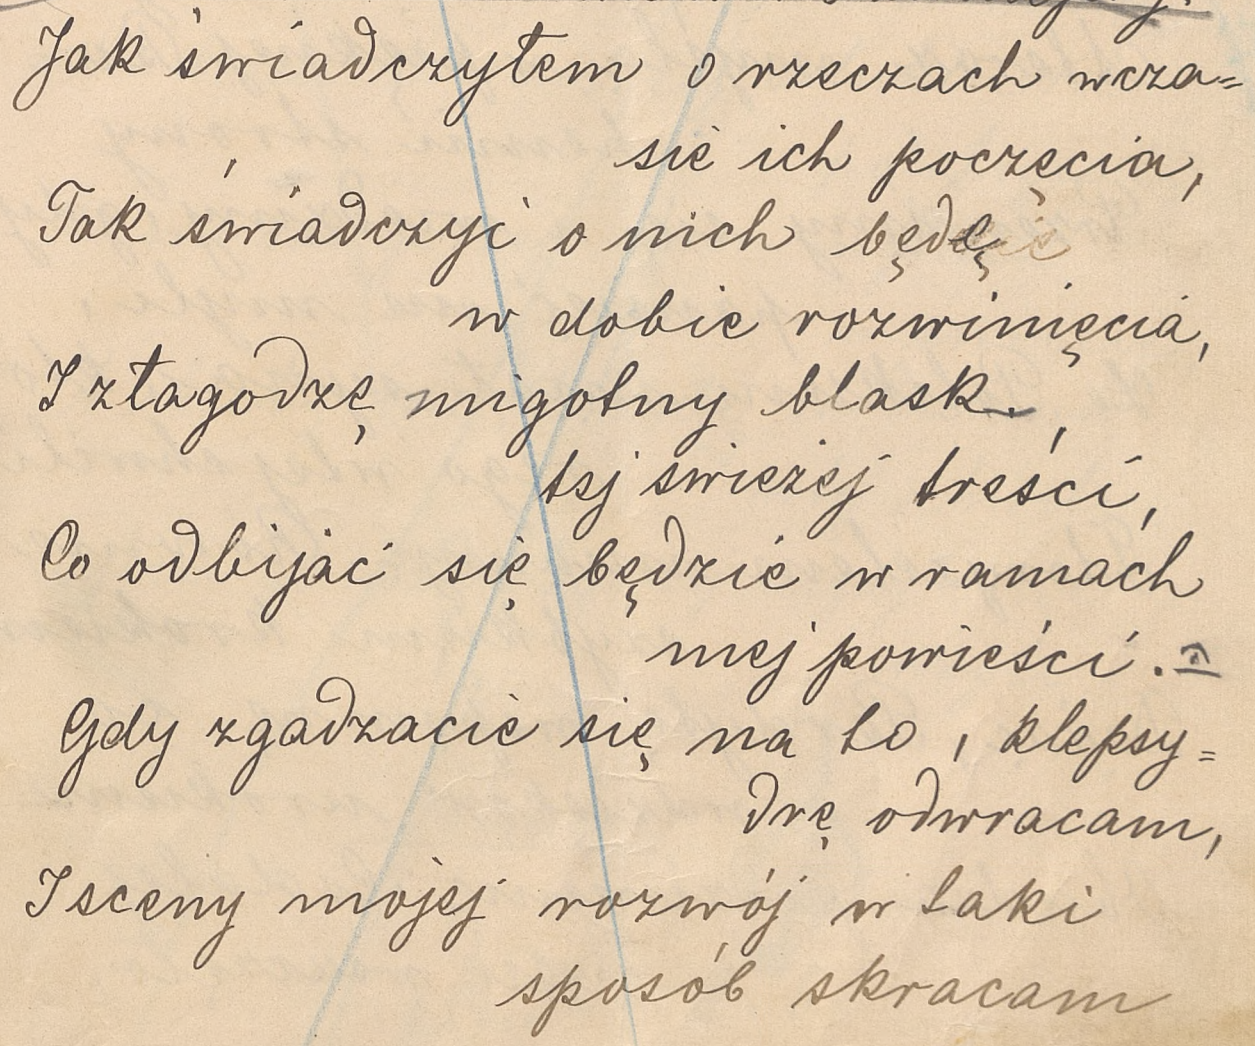 Jak świadczyłem o rzeczach wcza=
sie ich poczęcia,
Tak świadczyć o nich będę
w dobie rozwinięcia,
I złagodzę migotny blask
tej świeżej treści,
Co odbijać się będzie w ramach
mej powieści.
Gdy zgadzacie się na to, klepsy=
drę odwracam,
I sceny mojej rozwój w taki
sposób skracam